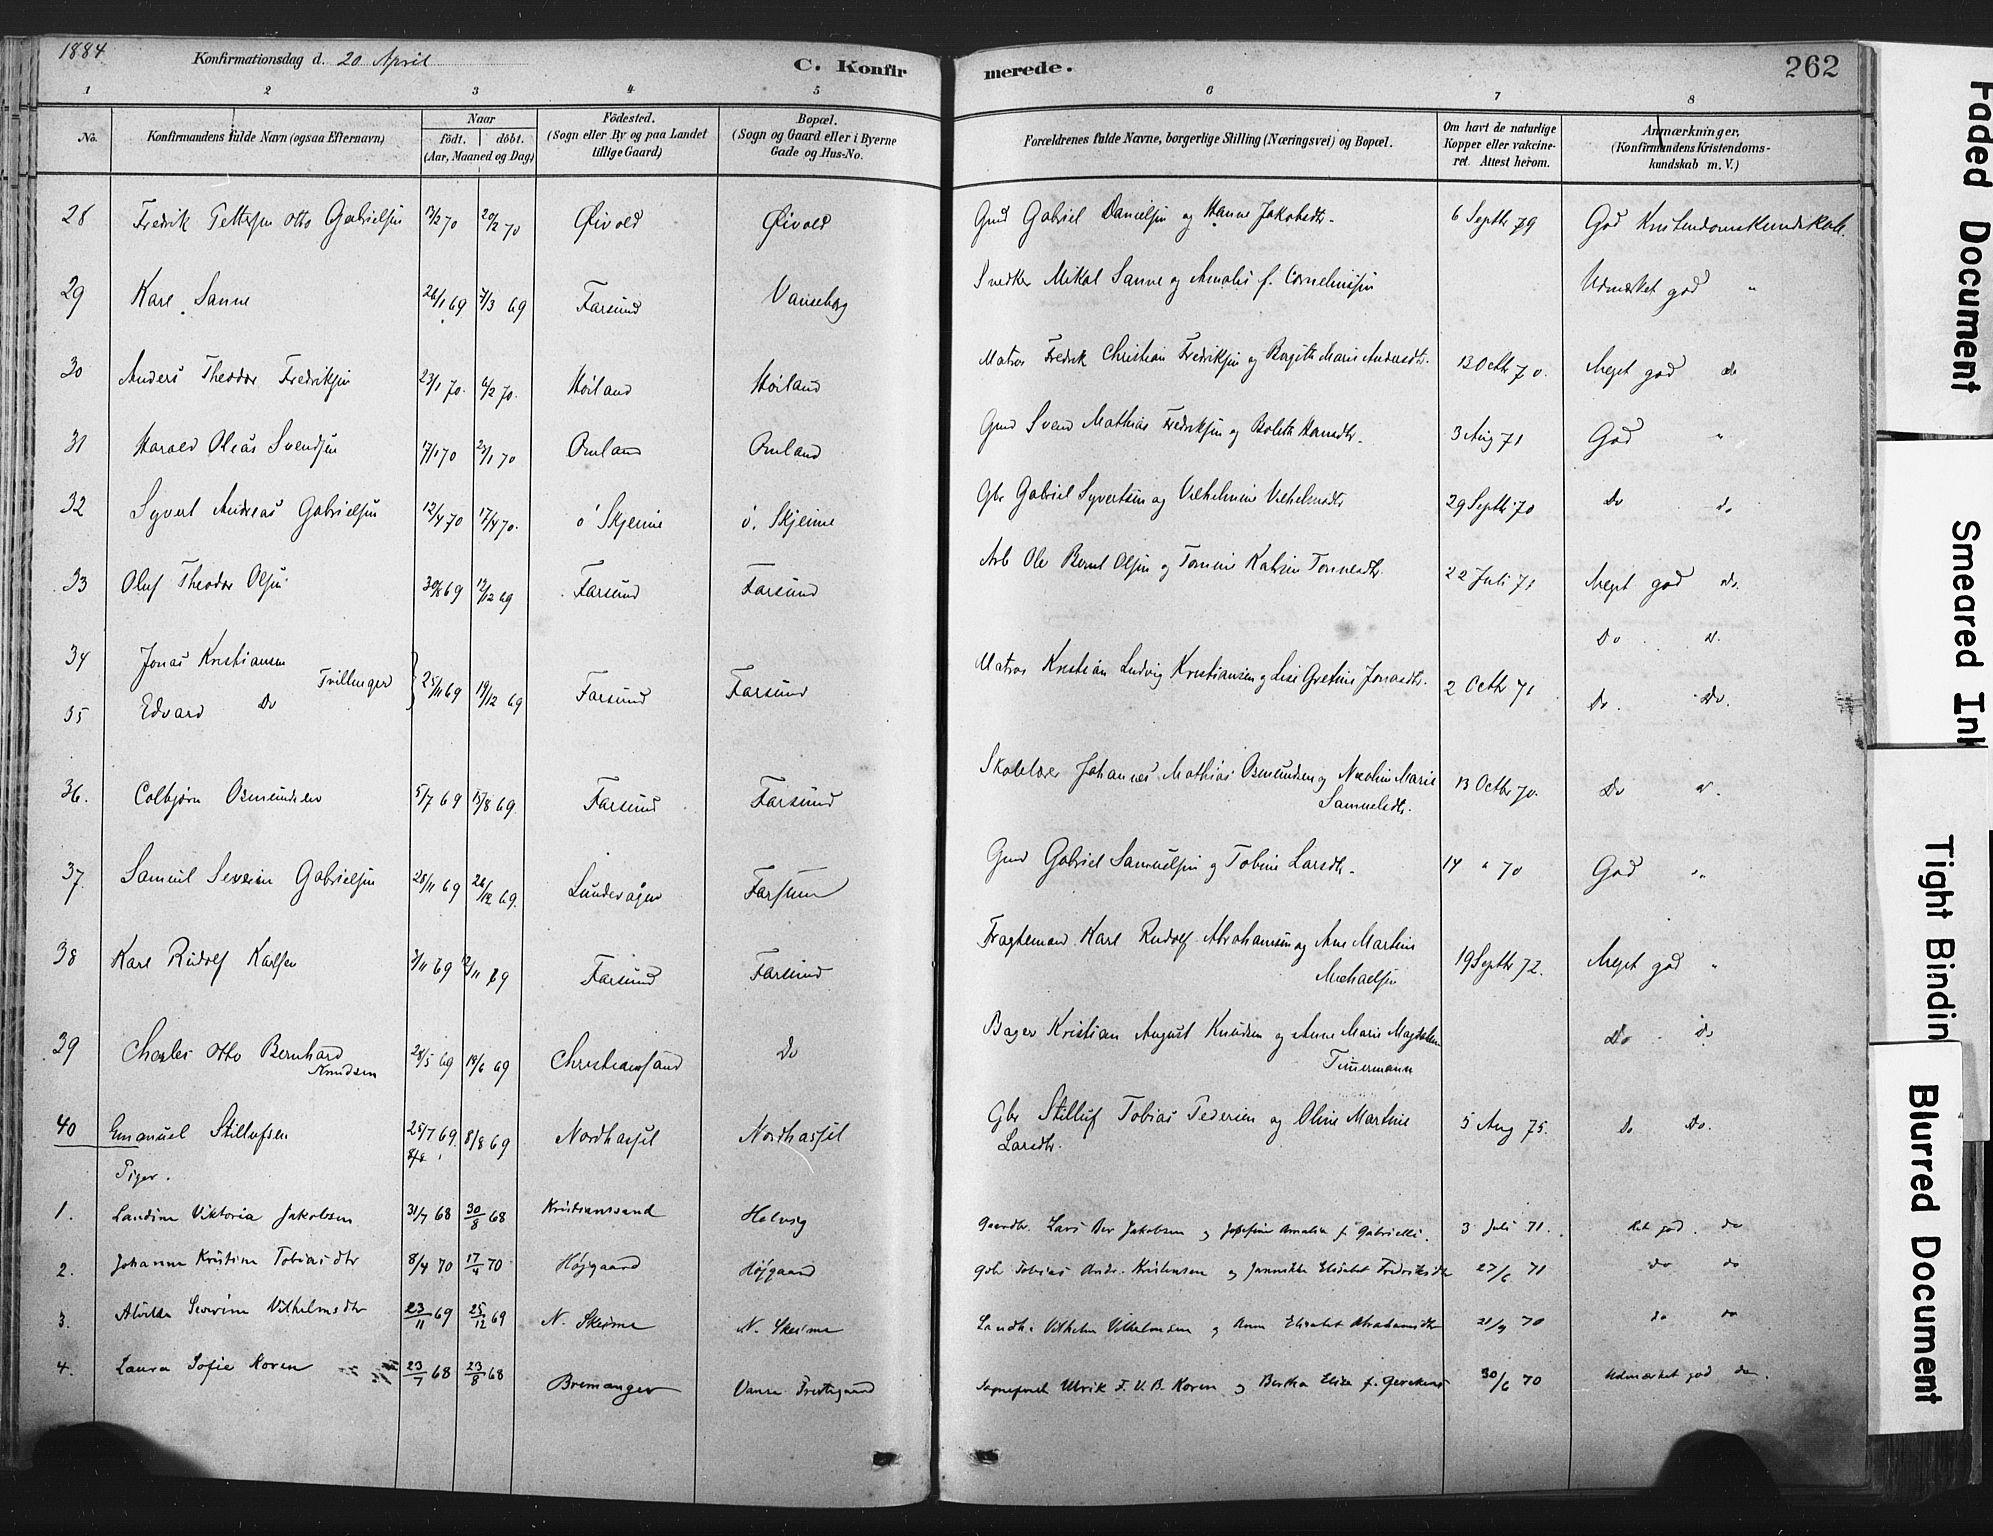 1884 Konfirmationsdag d. 20 April C. Konfirmerede. 262
1 2 3 4 5 6 7 8
No. Konfirmandens fulde Navn (ogsaa Efternavn) Naar født. døbt. (Aar, Maaned og Dag) Fødested. (Sogn eller By og paa Landet tillige Gaard) Bopæl. (Sogn og Gaard eller i Byerne Gade og Hus-No. Forældrenes fulde Navne, borgerlige Stilling (Næringsvei) og Bopæl. Om havt de naturlige Kopper eller vakcineret. Attest herom. Anmærkninger, (Konfirmandens Kristendomskundskab m. V.)
28 Fredrik Pettersen Otto Gabrielsen 13/2 70 20/2 70 Øivold Øivold Gmd Gabriel Danielsen og Hanne Jakobsdtr. 6 Septbr 79 God Kristendomskundskab.
29 Karl Sanne 26/1 69 7/3 69 Farsund Vanseborg Snedker Mikal Sanne og Amalie f. Corneliussen Udmerket god "
30 Anders Theodor Fredriksen 23/1 70. 6/2 70. Høiland Høiland Matros Fredrik Christian Fredriksen og Bergitte Marie Andersdtr. 13 Octbr 70. Meget god do
31 Harald Oleas Svendsen 17/1 70 23/1 70 Omland Omland Gmd Svend Mathias Fredriksen og Bolette Hansdtr. 3 Aug 71 God "
32 Syvert Andreas Gabrielsen 12/4 70 17/4 70. ø. Skjerme ø. Skjerme Gbr Gabriel Syvertsen og Vilhelmine Vilhelmsdtr 29 Septbr 70 Do do
33 Oluf Theodor Olsen 30/8 69 12/12 69 Farsund Farsund Arb Ole Bernt Olsen og Tomine Katrine Tonnesdtr. 22 Juli 71 Meget god do.
34 Jonas Kristiansen Tvillinger 25/11 69 19/12 69 Farsund Farsund Matros Kristian Ludvig Kristiansen og Lise Gretine Jonasdtr. 2 Octbr 71 Do d.
35 Edvard Do Do. Do.
36. Colbjørn Osmundsen 5/7 69 15/8 69. Farsund Farsund Skolelærer Johannes Mathias Osmundsen og Nicoline Marie Samuelsdtr. 13 Octbr 70. Do d.
37 Samuel Severin Gabrielsen 28/11 69 26/12 69. Lundevågen Farsund Gmd Gabriel Samuelsen og Tobine Larsdtr. 14 " 70 God "
38 Karl Rudolf Karlsen 3/11 69 /11 69 Farsund Farsund Fragtemand Karl Rudolf Abrahamsen og Ane Martine Michaelsen 19 Septbr 72. Meget god "
39 Charles Otto Bernhard Knudsen 28/5 69 19/6 69 Christiansand Do Bager Kristian August Knudsen og Anne Marie Magdalene Timermann Do Do
40 Emanuel Stillufsen 25/7 69. 8/8 8/8 69 Nordhassel Nordhassel Gbr Stilluf Tobias Pedersen og Oline Martine Larsdtr. 5 Aug 75. Do Do.
Piger.
1. Landine Viktoria Jakobsen 31/7 68 30/8 68 Kristianssand Holvig Lars Ber Jakobsen og Josefine Amalia f. Gabrielli. 3 Juli 71. Ret god. do
2. Johanne Kristine Tobiasdtr 8/4 70 17/4 70 Højgaard Højgaard Gbr Tobias Andr. Kristensen og Jannikke Elisabet Fredriksdtr 27/6 71 do do
3. Alvilde Severine Vilhelmsdtr 23/11 69 25/12 69 N. Skeime N. Skeime Vilhelm Vilhelmsen og Anna Elisabet Abrahamsdtr 21/9 70 do do
4. Laura Sofie Koren 23/7 68 23/8 68 Bremanger Vanse Prestegaard Sogneprest Ulrik F. U. B. Koren og Bertha Elisa f. Gerckens 30/6 70 Udmærket god do.
Faded Document
Smeared Ink
Tight Bindin
Blurred Document